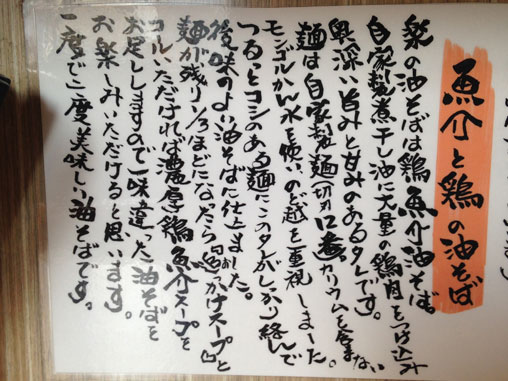 魚介と鶏の油そば
楽の油そばは鶏魚介油そば。
自家製煮干し油に大量の鶏肉をつけ込み
奥深い旨みと甘みのあるタレです。
麺は自家製麺切刃口番。カリウムを含まない
モンゴルかん水を使いのど越を重視しました。
つるっとコシのある麺にこのタレがしっかり絡んで
後味のよい油そばに仕上ました。
麺が残り1/3ほどになったら『ぶっかけスープ』と
コールいただければ濃厚鶏魚介スープを
お足ししますので一味違った油そばを
お楽しみいただけると思います。
一度で二度美味しい油そばです。